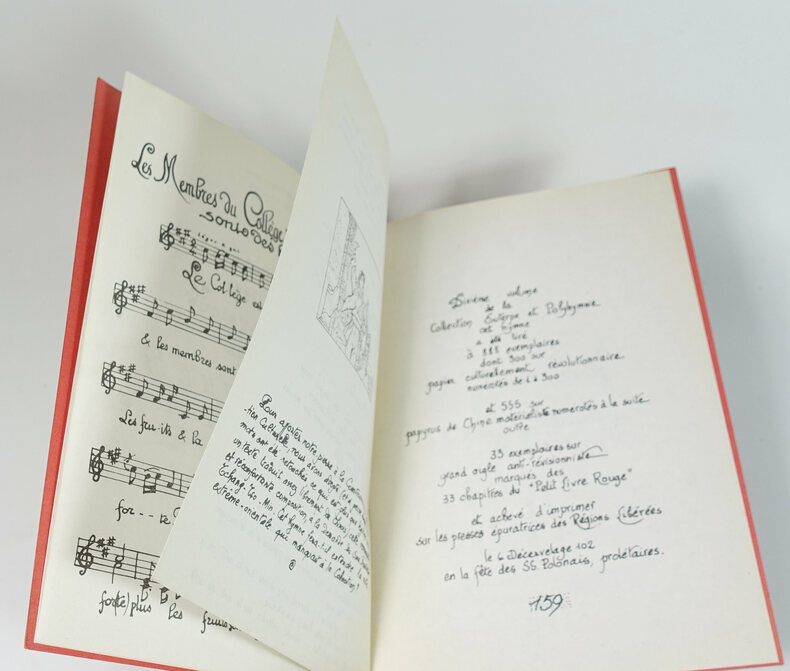 Les Membres du Collège
sont des
Le Col-lège es
& les membres sont
Les fru-its & la
for--te
for(te) plus les fruits
Pour ajouter notre pierre à la
-tion Culturelle, nous avons
mots ont été retouchés ce qui est plus que
un texte traduit assez librement du
et réconfortante composition, à la
Tchang Tso-Min. Cet hymne
extrême-orientale qui manquait à la Collection
volume
de la
Collection Euterpe et Polyhymnie
cet hymne
a été tiré
à 888 exemplaires
dont 300 sur
papier culturellement révolutionnaire
numérotés de 1 à 300
et 555 sur
papyrus de Chine matérialiste numérotés à la suite
outre
33 exemplaires sur
grand aigle anti-révisionniste
marqués des
33 chapitres du "Petit Livre Rouge"
et achevé d'imprimer
sur les presses épuratrices des Régions Libérées
le 6 Décervelage 102
en la fête des SS. Polonais, prolétaires.
159